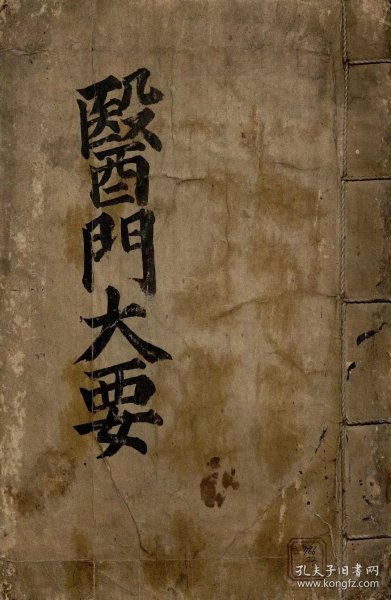 醫門大要
766
孔夫子旧書网
www.kongfz.com